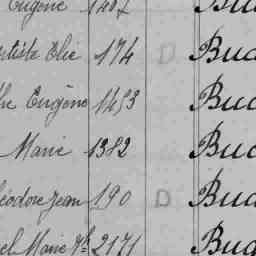 Eugène 1487 Bud
Elie 174 D Bud
Eugène 1453 Bud
Marie 1382 Bud
éodore Jean 190 D Bud
el Marie 2171 Bud